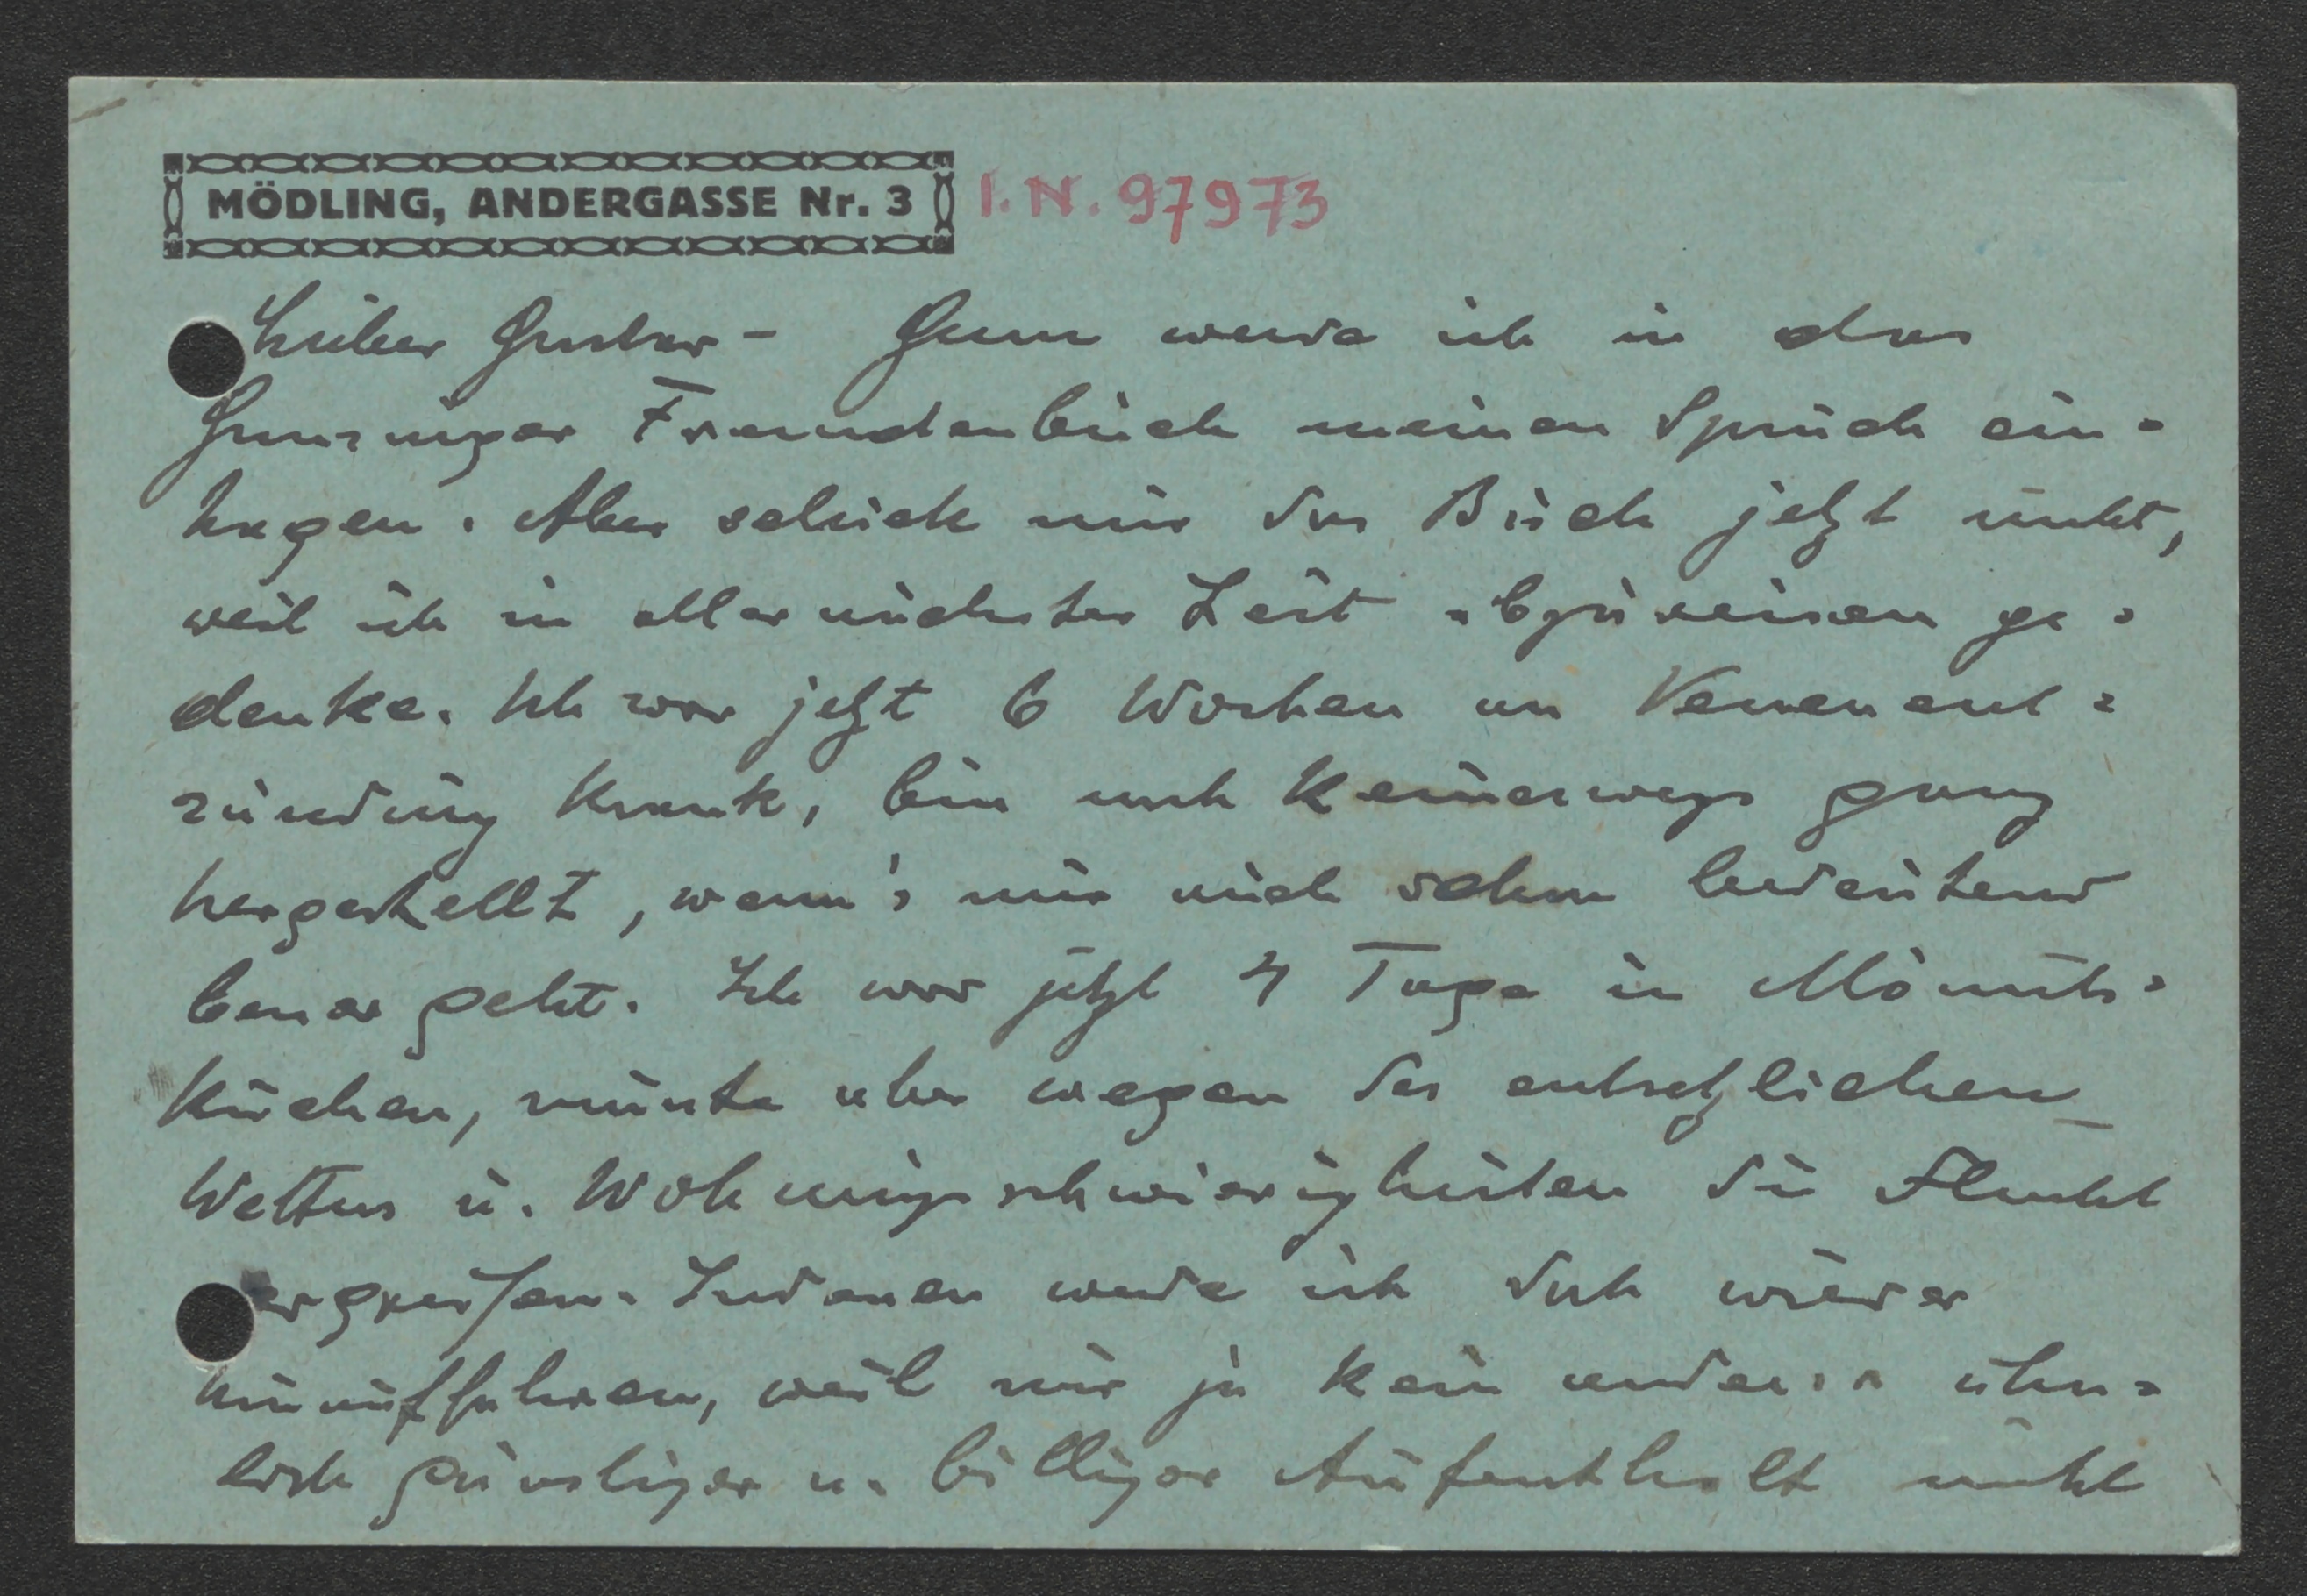 MÖDLING, ANDERGASSE Nr. 3
I. N. 97973
Lieber Gustav – Gern werde ich in das
Gumpinger Fremdenbuch meinen Spruch ein-
tragen. Aber schick mir das Buch jetzt nicht,
weil ich in allernächster Zeit abzureisen ge-
denke. Ich war jetzt 6 Wochen an Venenent-
zündung krank, bin noch keineswegs ganz
hergestellt, wenn's mir auch schon bedeutend
besser geht. Ich war jetzt 4 Tage in Mönich-
kirchen, musste aber wegen des entsetzlichen
Wetters u. Wohnungsschwierigkeiten die Flucht
ergreifen. Indessen werde ich doch wieder
hinauffahren, weil mir ja kein anderer ähn-
lich günstiger u. billiger Aufenthalt nicht